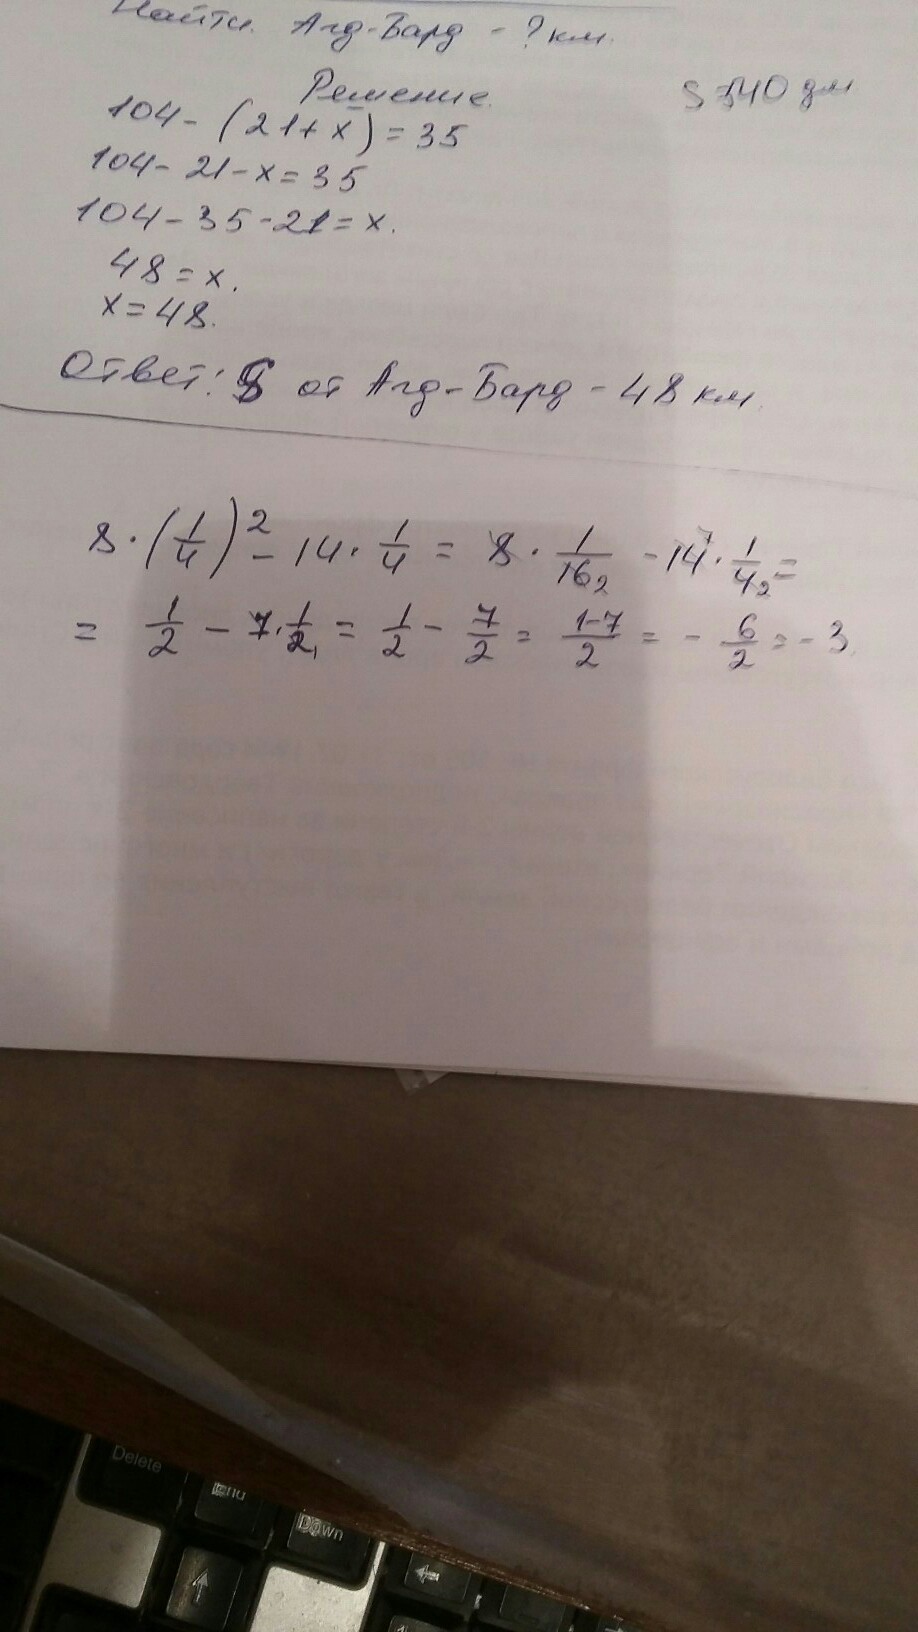 Найти. Агд-Бард - ? км.
Решение.
104 - (21 + x) = 35
104 - 21 - x = 35
104 - 35 - 21 = x.
48 = x.
x = 48.
Ответ: S от Агд-Бард - 48 км.
8 · (1/4)² - 14 · 1/4 = 8 · 1/16 2 - 14 7 · 1/4 2 =
= 1/2 - 7 · 1/2 = 1/2 - 7/2 = 1-7/2 = - 6/2 = - 3.
Delete
Down
↑
←